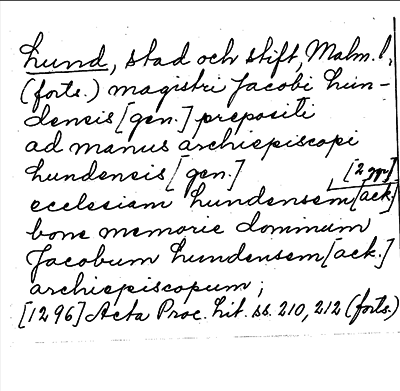 Lund, stad och stift, Malm. l.
(forts.) magistri Jacobi Lun-
densis [gen.] prepositi
ad manus archiepiscopi
Lundensis [gen.]
[2 ggr]
ecclesiam Lundensem [ack.]
bone memorie dominum
Jacobum Lundensem [ack.]
archiepiscopum;
[1296] Acta Proc. Lit. ss. 210, 212 (forts.)